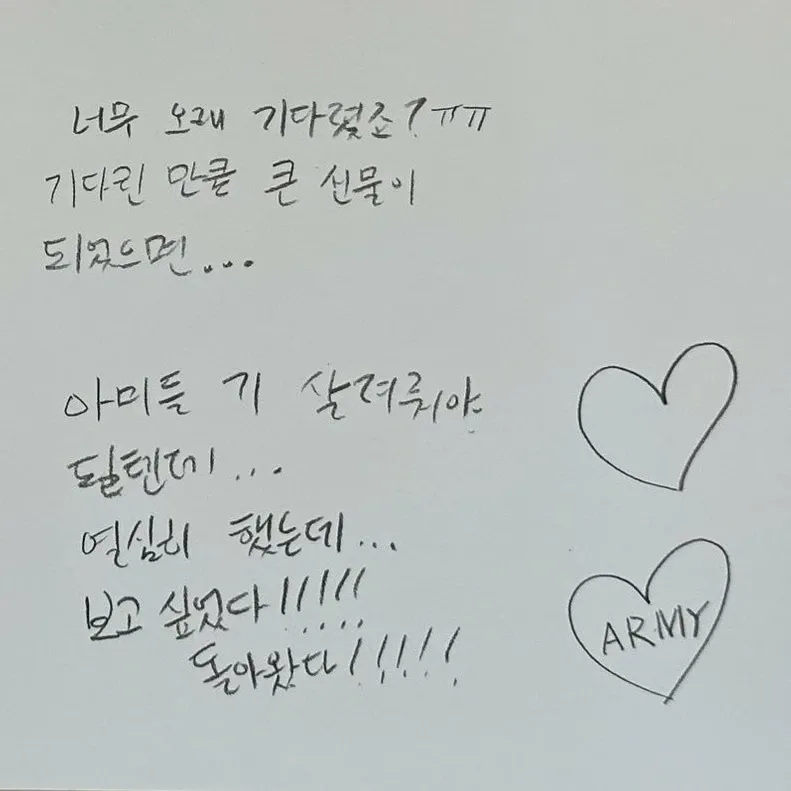 너무 오래 기다렸죠?ㅠㅠ
기다린 만큼 큰 선물이
되었으면...
아미들 기 살려줘야
될텐데...
열심히 했는데...
보고 싶었다!!!!!
돌아왔다!!!!!
ARMY